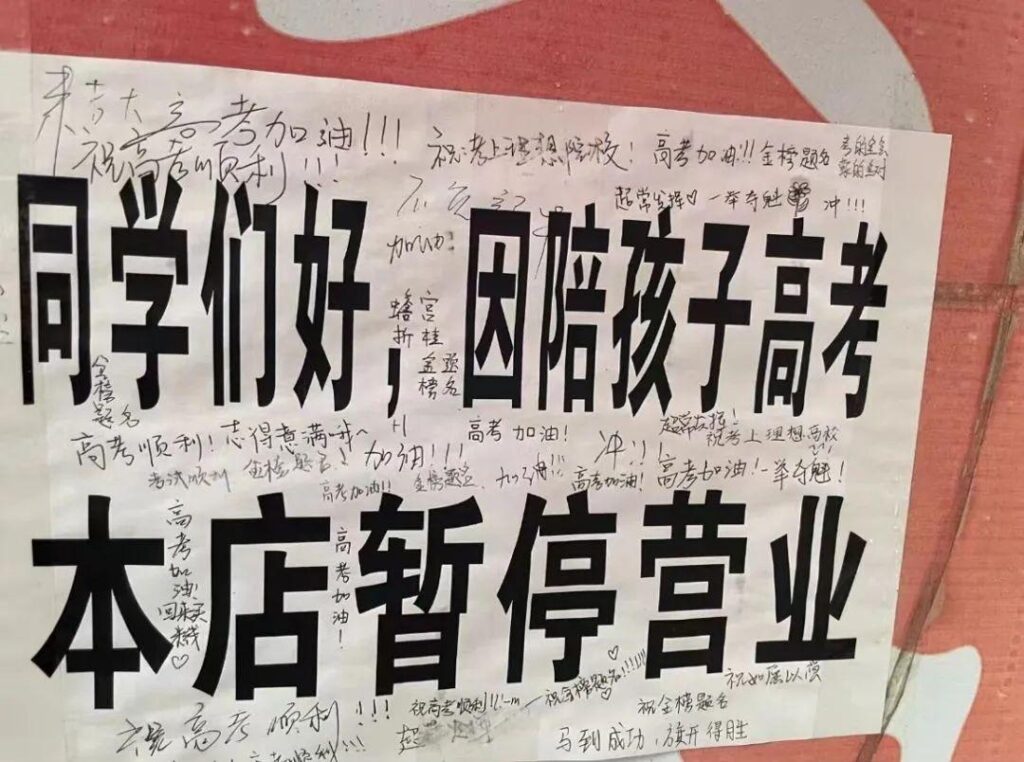 高考加油!!!
祝高考顺利!!!
祝:考上理想院校!
高考加油!!!
金榜题名
考的全会
蒙的全对
超常发挥♡
一举夺魁
冲!!!
加油!
同学们好,因陪孩子高考
蟾宫折桂
金榜题名
金榜题名
高考顺利!
志得意满哦~
+1
高考加油!
冲!!!
超常发挥!
祝考上理想高校
考试顺利
金榜题名!
加油!!!
高考加油!!
金榜题名
加油!!!
高考加油!
高考加油!
一举夺魁!
本店暂停营业
高考加油!
回来买
♡
高考加油!
祝高考顺利!!!
祝高考顺利!!!
祝金榜题名!!!!!!
♡
祝如愿以偿
祝金榜题名
马到成功,旗开得胜
高考顺利!!!